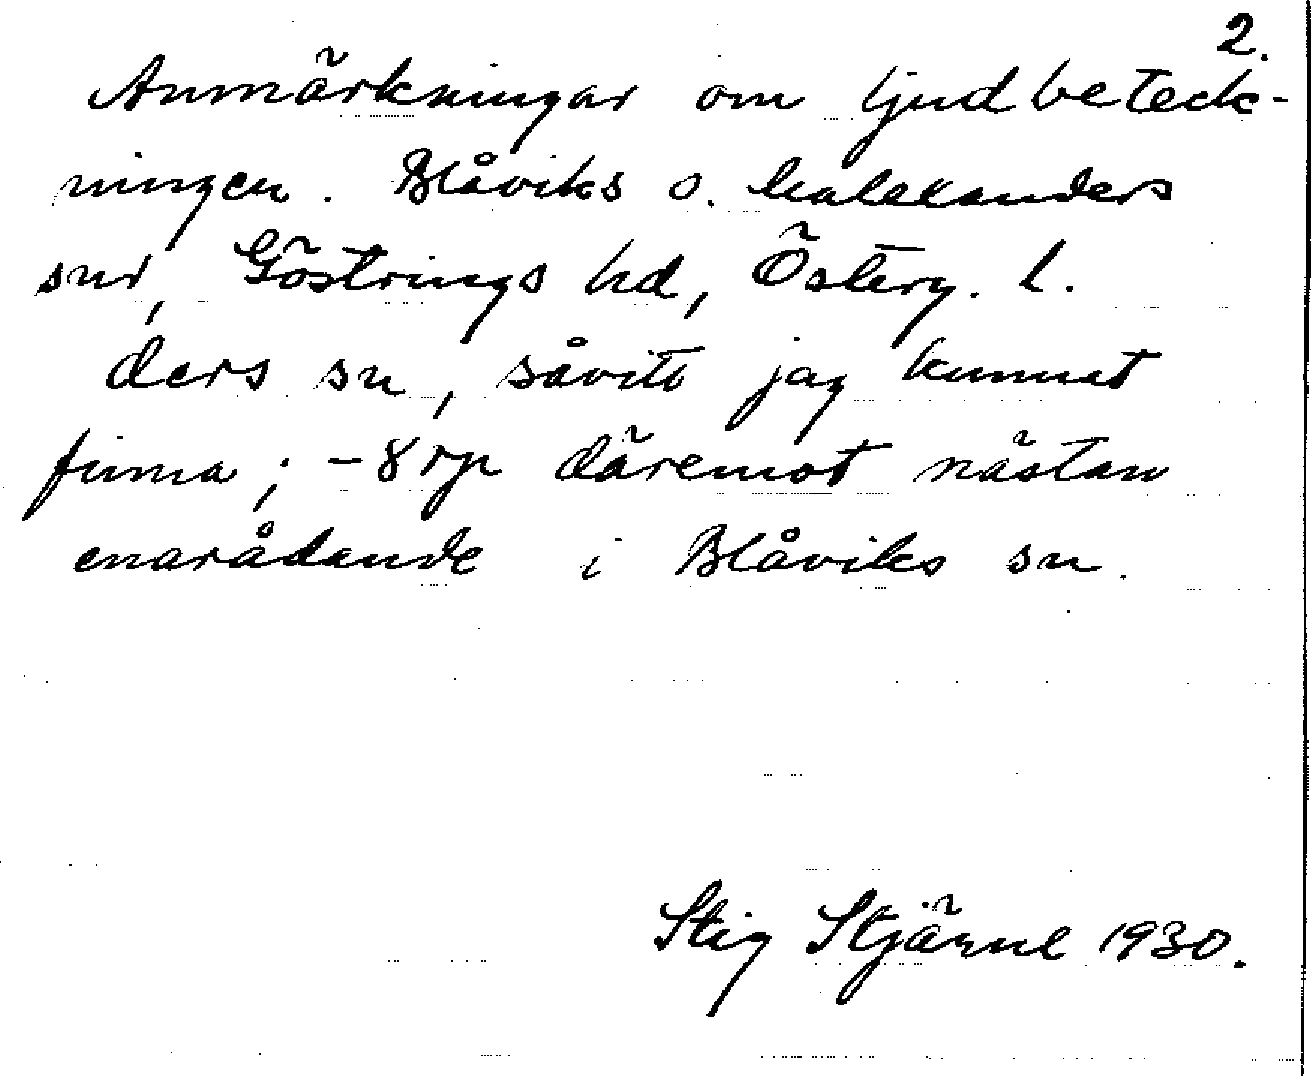 2.
Anmärkningar om ljudbeteck-
ningen. Blåviks o. Malexanders
snr, Göstrings hd, Österg. l.
ders sn, såvitt jag kunnat
finna; -8 rp däremot nästan
enarådande i Blåviks sn.
Stig Stjärne 1930.